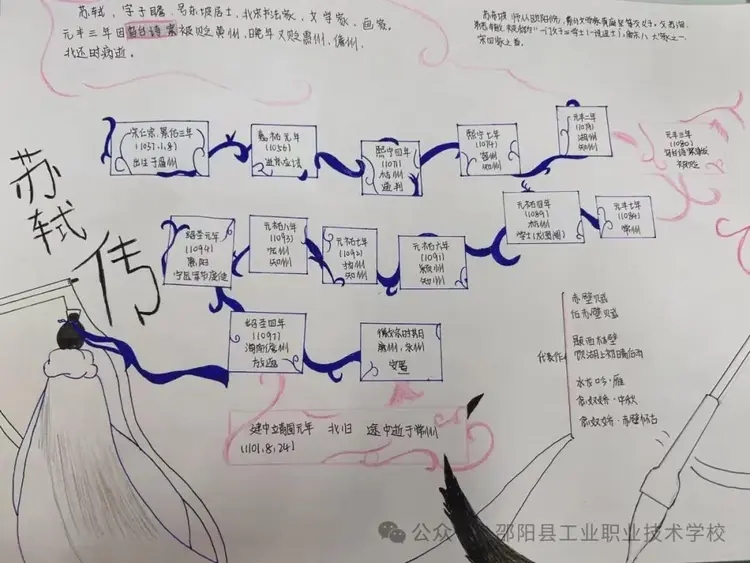 苏轼，字子瞻，号东坡居士，北宋书法家，文学家，画家。
元丰三年因乌台诗案被贬黄州，晚年又贬惠州，儋州，
北还时病逝。
宋四家之首。
宋仁宗，景佑三年
(1037.1.8)
出生于眉州
嘉祐元年
(1056)
进京应试
熙宁四年
(1071)
杭州
通判
熙宁七年
(1074)
密州
知州
元丰二年
(1079)
湖州
知州
元丰三年
(1080)
被贬
苏
轼
传
绍圣元年
(1094)
惠阳
元祐八年
(1093)
定州
知州
元祐七年
(1092)
扬州
知州
元祐六年
(1091)
颍州
知州
元祐四年
(1089)
杭州
元丰七年
(1084)
常州
绍圣四年
(1097)
海南儋州
放逐
廉州，永州
安置
建中立靖国元年 北归 途中逝于常州
(1101.8.24)
代表作
赤壁赋
后赤壁赋
题西林壁
饮湖上初晴后雨
水龙吟·雁
念奴娇·中秋
念奴娇·赤壁怀古
公众号 邵阳县工业职业技术学校